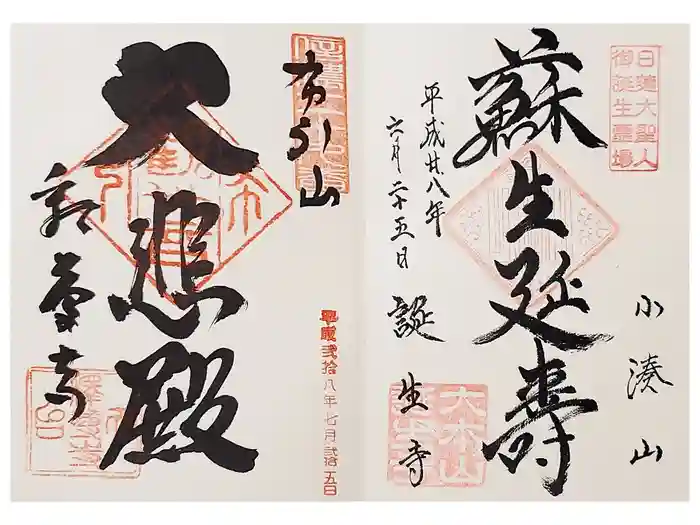 日蓮大聖人
御誕生霊場
小湊山
蘇生延壽
平成廿八年
六月二十五日
誕生寺
大本山
布引山
大悲殿
釈尊寺
平成弐拾八年七月弐拾五日